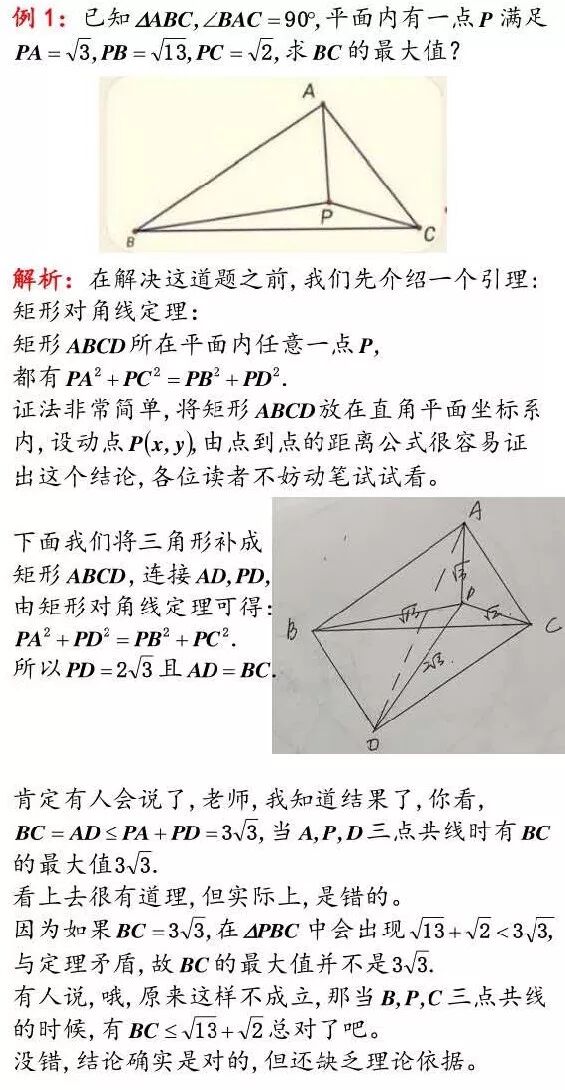 例1：已知 ΔABC,∠BAC=90°,平面内有一点P 满足
PA=√3,PB=√13,PC=√2,求BC的最大值？
A
P
B
C
解析：在解决这道题之前,我们先介绍一个引理：
矩形对角线定理：
矩形ABCD所在平面内任意一点P,
都有PA²+PC²=PB²+PD².
证法非常简单,将矩形ABCD放在直角平面坐标系
内,设动点P(x,y),由点到点的距离公式很容易证
出这个结论,各位读者不妨动笔试试看。
下面我们将三角形补成
矩形ABCD,连接AD,PD,
由矩形对角线定理可得：
PA²+PD²=PB²+PC².
所以PD=2√3且AD=BC.
A
√3
P
B
√13
√2
C
2√3
D
肯定有人会说了,老师,我知道结果了,你看,
BC=AD≤PA+PD=3√3,当A,P,D三点共线时有BC
的最大值3√3.
看上去很有道理,但实际上,是错的。
因为如果BC=3√3,在ΔPBC中会出现√13+√2<3√3,
与定理矛盾,故BC的最大值并不是3√3.
有人说,哦,原来这样不成立,那当B,P,C三点共线
的时候,有BC≤√13+√2总对了吧。
没错,结论确实是对的,但还缺乏理论依据。